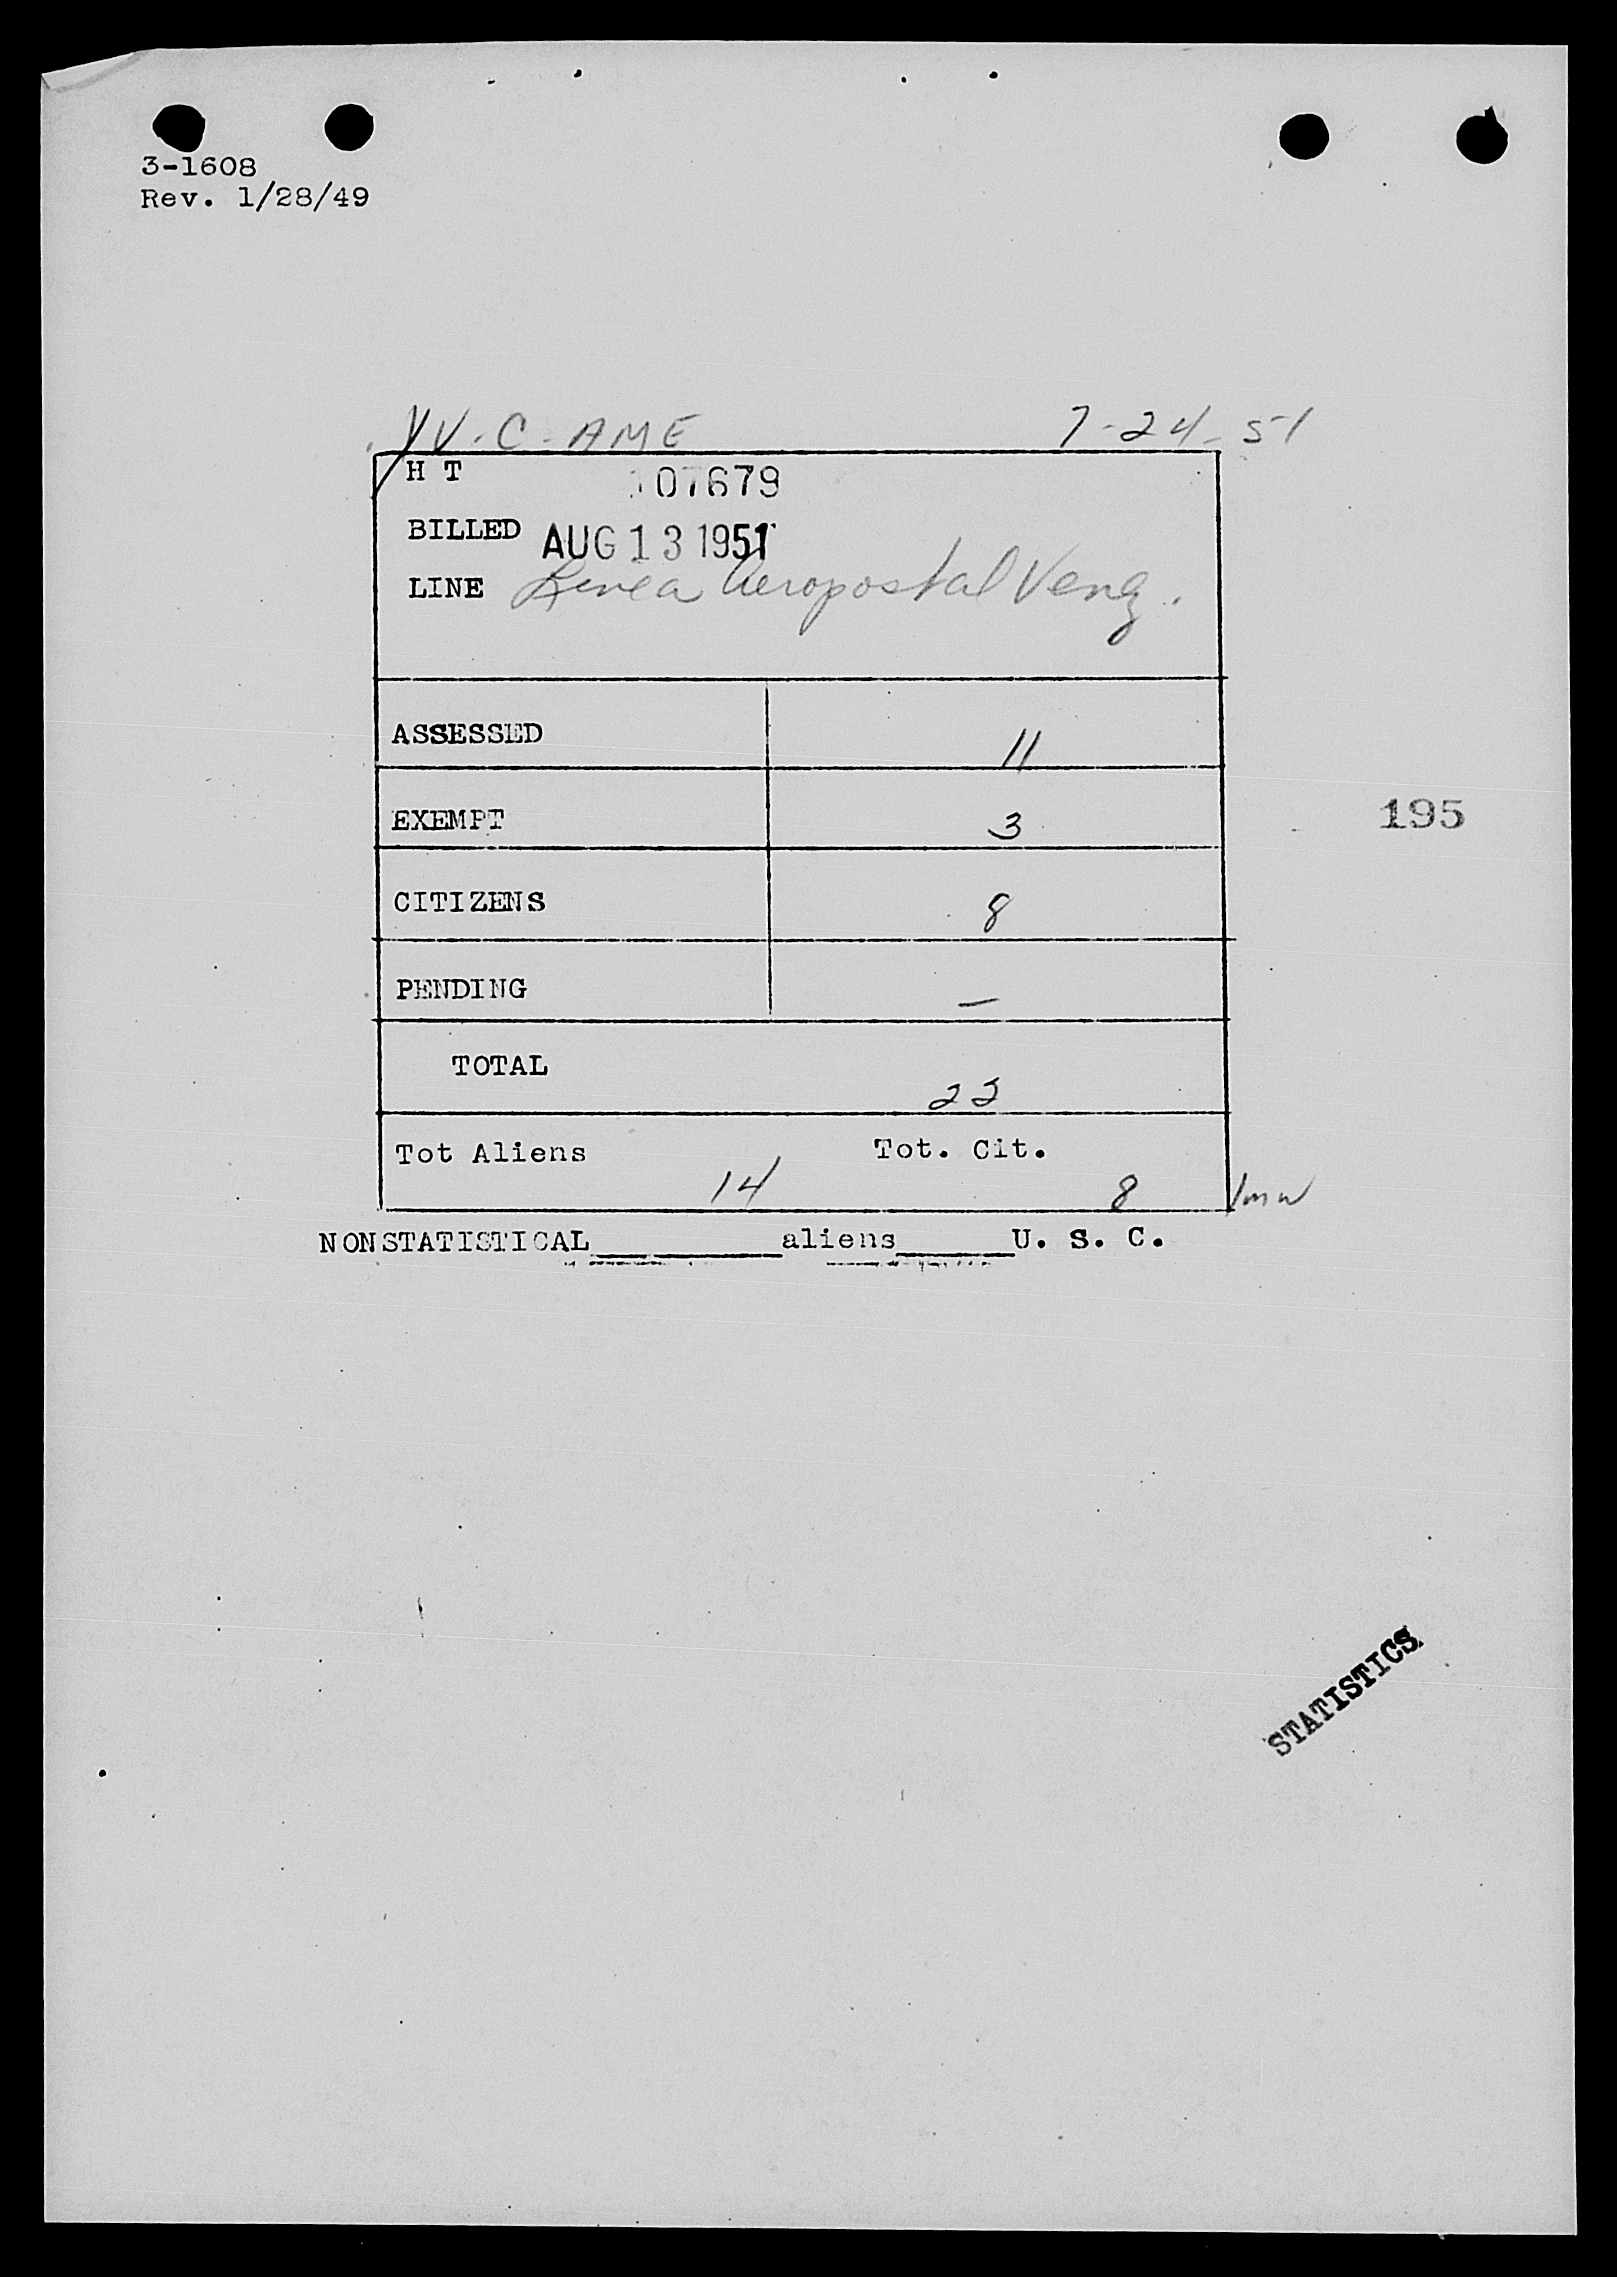 3-1608
Rev. 1/28/49
YV-C-AME 7-24-51
H T 107679
BILLED AUG 13 1951
LINE Linea Aeropostal Venz.
ASSESSED 11
EXEMPT 3
195
CITIZENS 8
PENDING —
TOTAL 22
Tot Aliens 14 Tot. Cit. 8
NONSTATISTICAL__________aliens______U. S. C.
STATISTICS